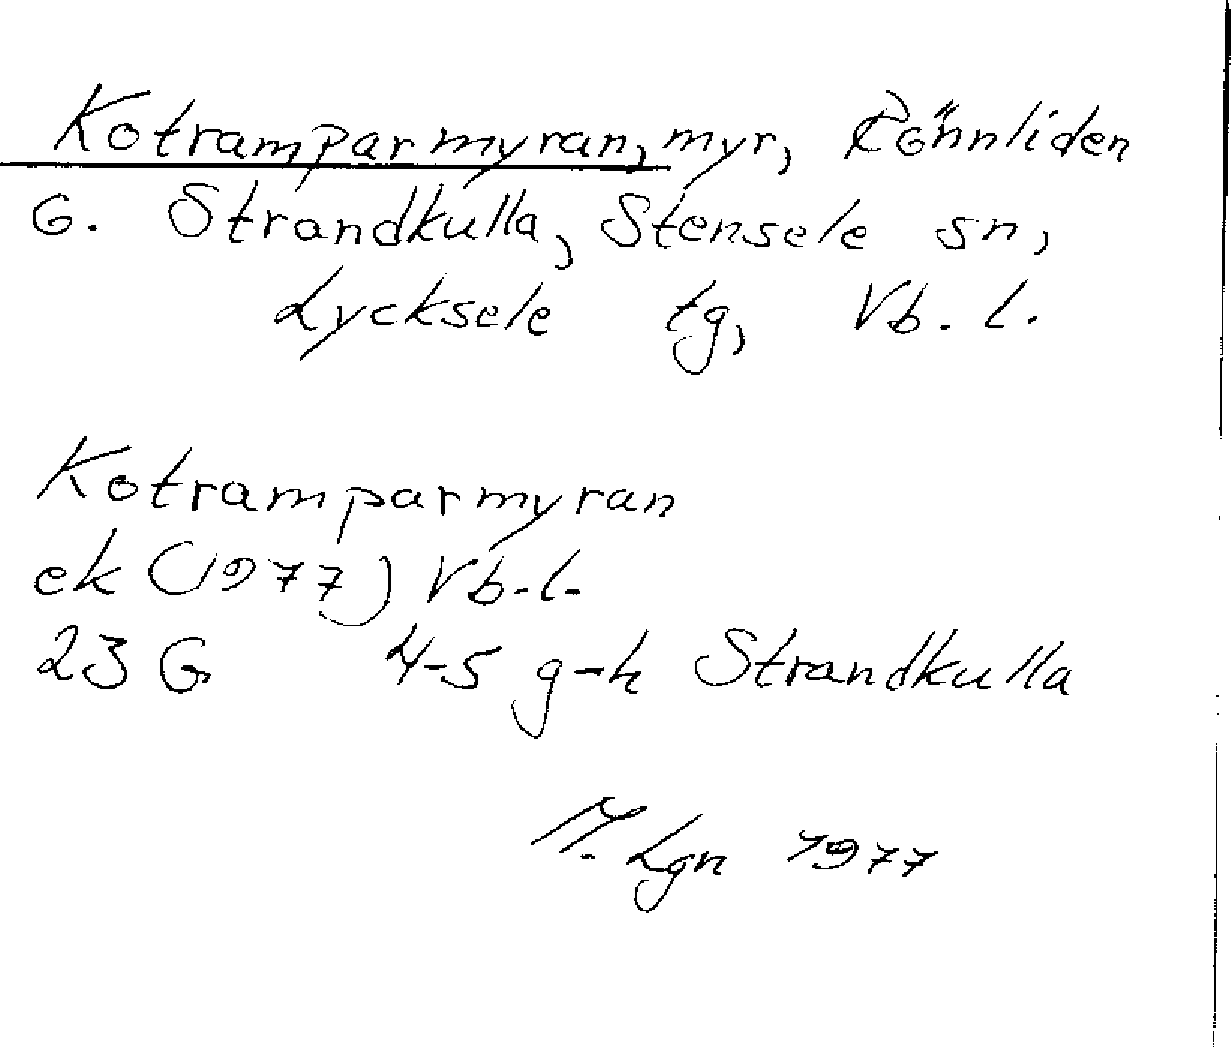 Kotramparmyran, myr, Rönnliden
G. Strandkulla, Stensele sn,
Lycksele tg, Vb. l.
Kotramparmyran
ek (1977) Vb. l.
23 G 4-5 g-h Strandkulla
M. Lgn 1977